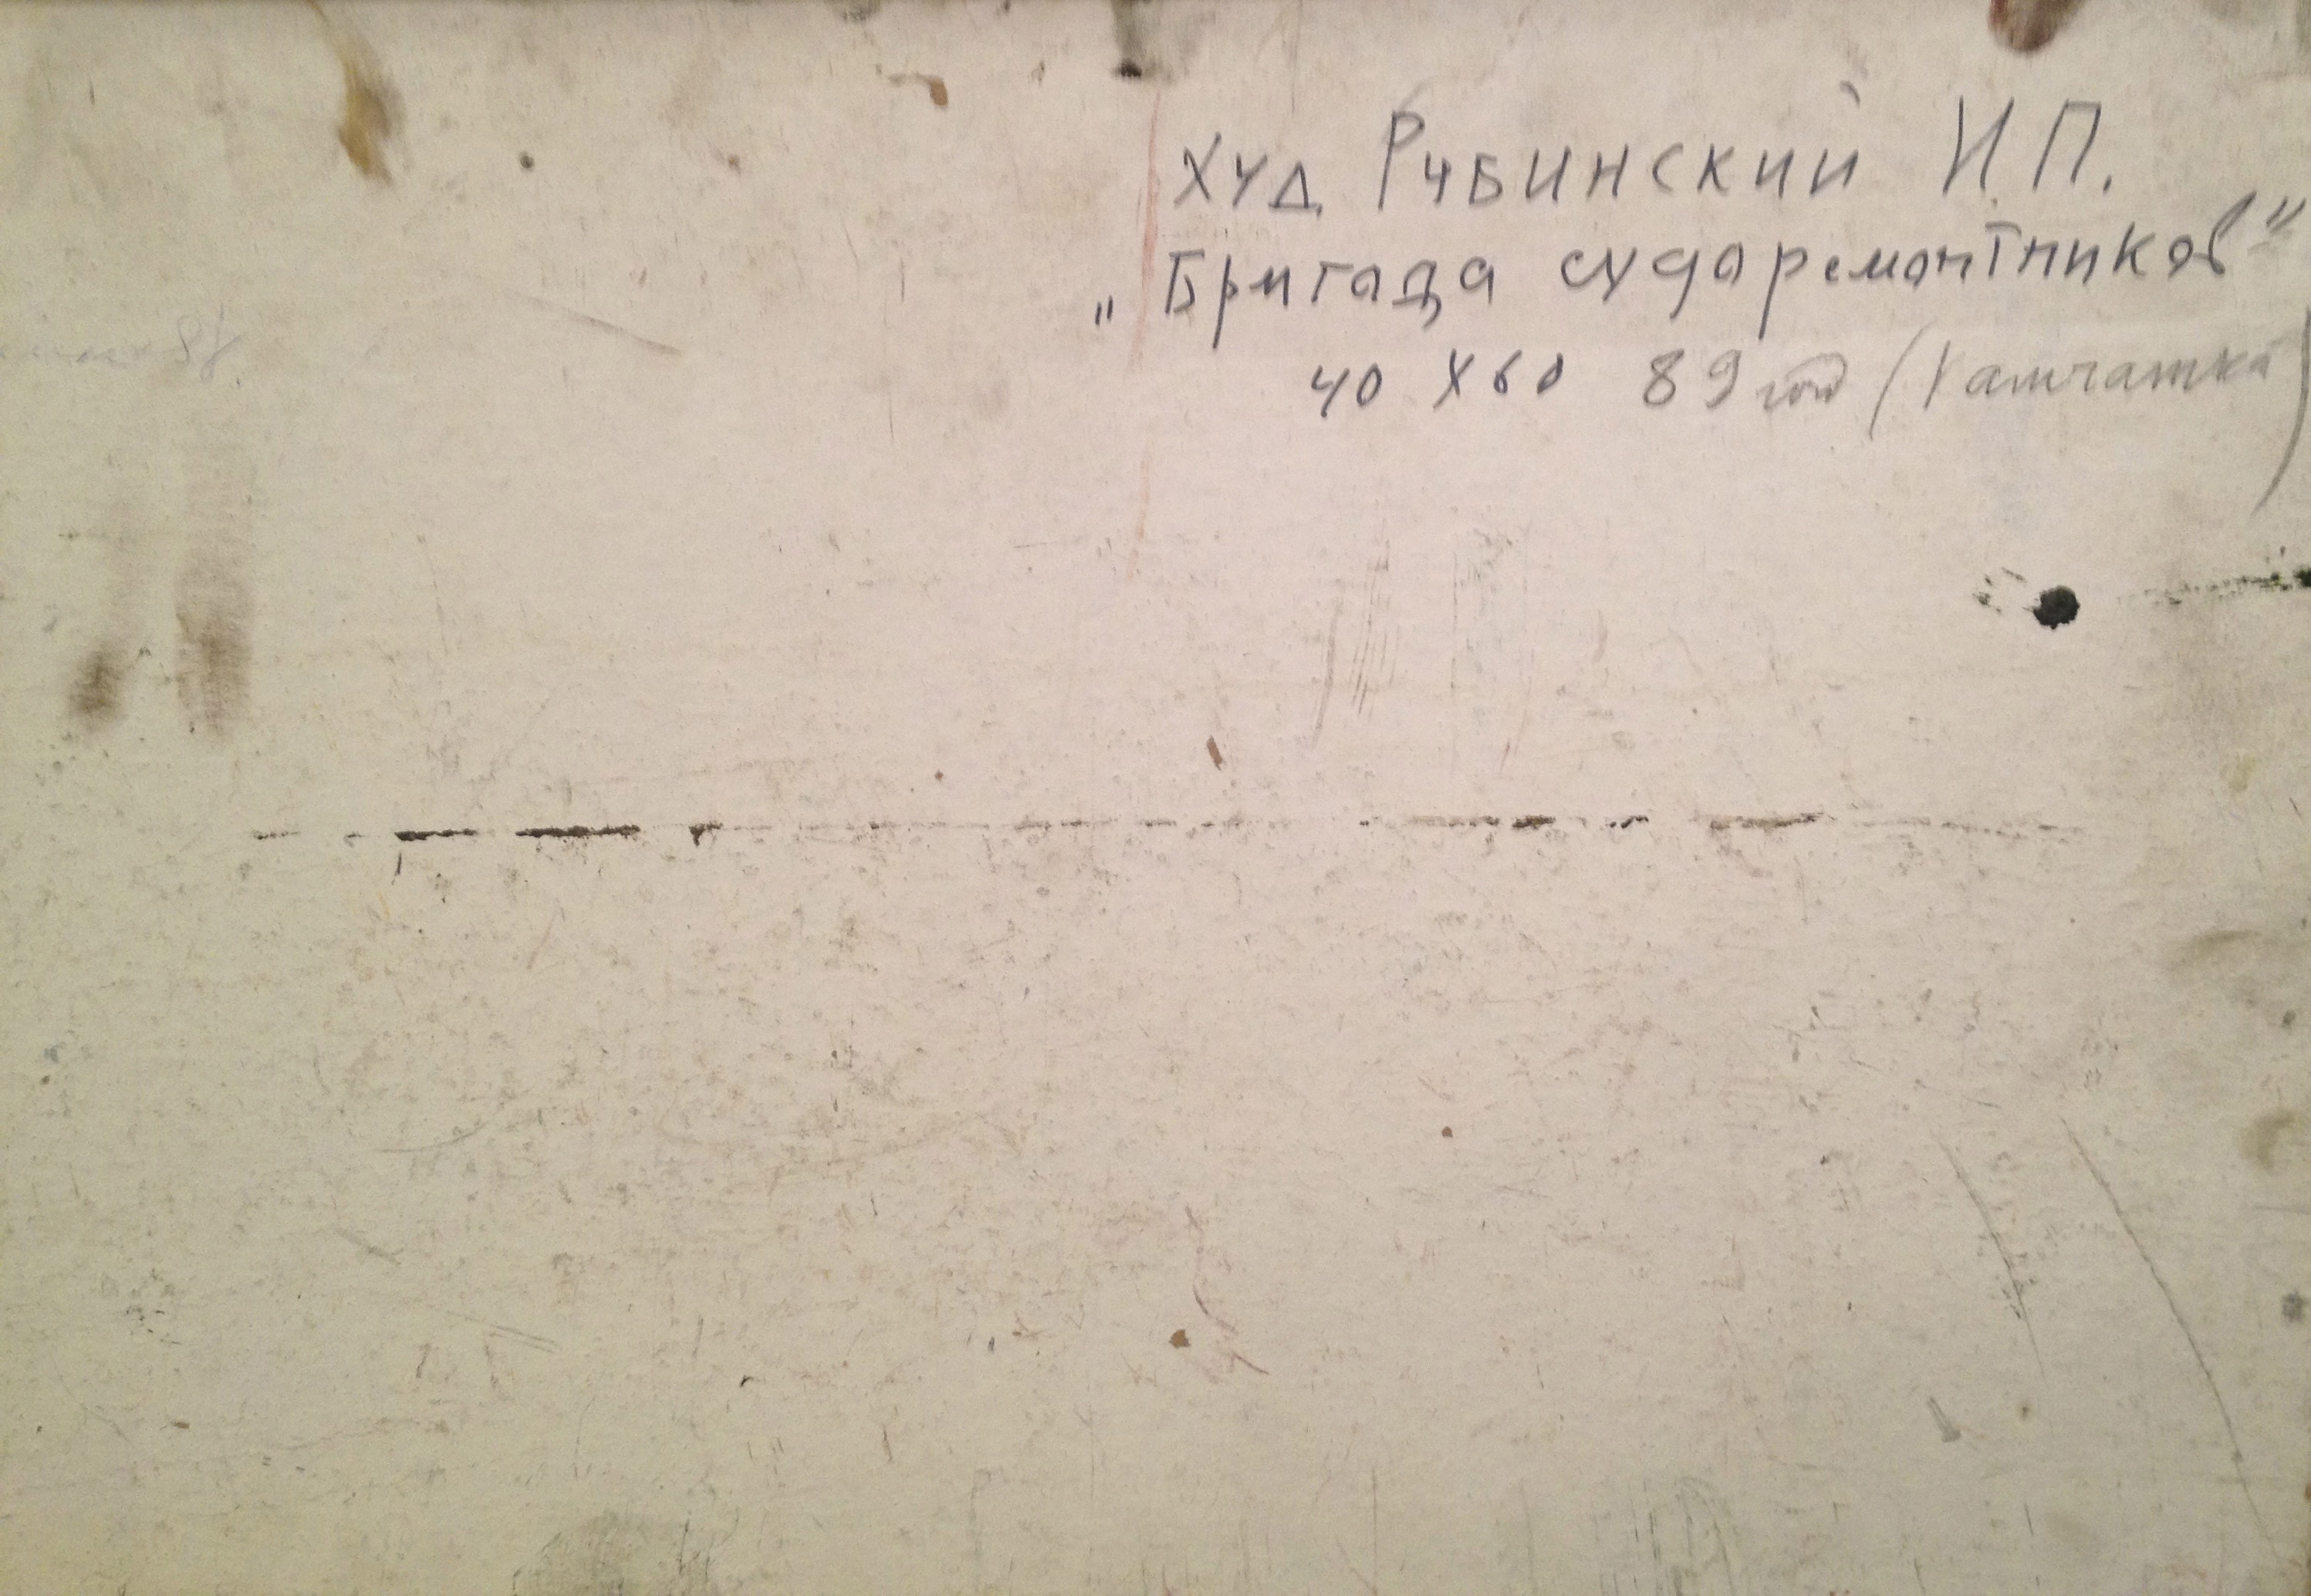 худ. Рубинский И.П.
„Бригада судоремонтников"
40 х 60 89 год (Камчатка)